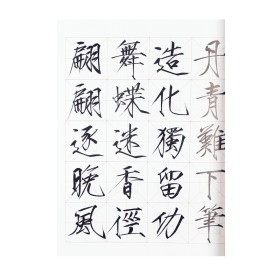 丹青難下筆
造化獨留功
舞蝶迷香徑
翩翩逐晚風